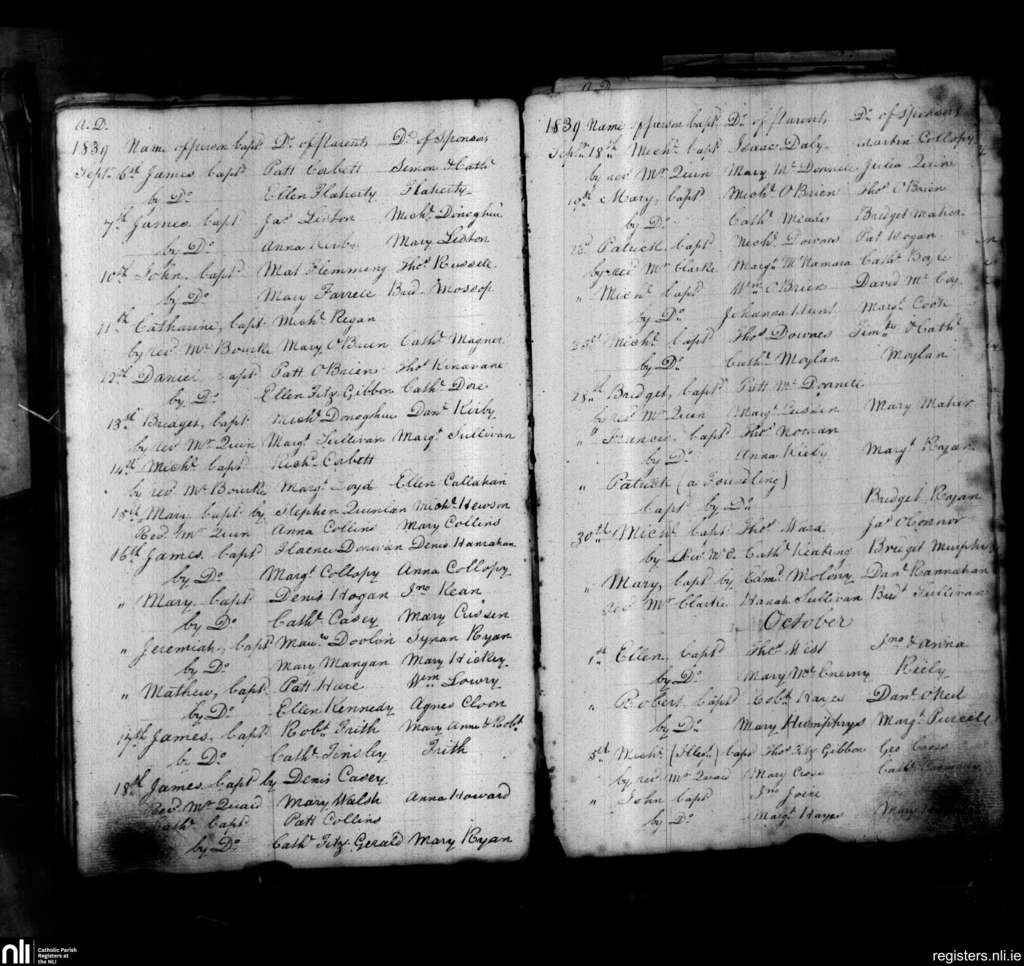 A.D.
1839 Name of person bapt. Do. of Parents Do. of Sponsors
Septr. 6th James bapt. Patt Corbett Simon & Cathe.
by Do. Ellen Flaherty Flaherty
7th James bapt. Jas. Liston Michl. Donoghue
by Do. Anna Kirby Mary Liston
10th John bapt. Mat Flemming Thos. Russell
by Do. Mary Farrell Brid. Mossop
11th Catharine, bapt. Michl. Regan
by revd. Mr. Bourke Mary O'Brien Cathe. Magner
12th Daniel bapt. Patt O'Brien Thos. Kinavane
by Do. Ellen Fitz Gibbon Cathe. Dore
13th Bridget, bapt. Michl. Donoghue Danl. Kirby
by revd. Mr. Quin Margt. Sullivan Margt. Sullivan
14th Michl. bapt. Richd. Corbett
by revd. Mr. Bourke Margt. Loyd Ellen Callahan
15th Mary bapt. by Stephen Quinlan Michl. Hewson
Revd. Mr. Quin Anna Collins Mary Collins
16th James, bapt. Florence Donovan Denis Hanrahan
by Do. Margt. Collopy Anna Collopy
" Mary bapt. Denis Hogan Jno. Kean
by Do. Cathe. Casey Mary Cussen
" Jeremiah, bapt. Maurs. Doolin Synan Ryan
by Do. Mary Mangan Mary Hickey
" Mathew, bapt. Patt Hare Wm. Lowry
by Do. Ellen Kennedy Agnes Cloon
17th James, bapt. Robt. Frith Mary Anne & Robt.
by Do. Cathe. Tinsley Frith
18th James bapt by Denis Casey
Revd. Mr. Quaid Mary Walsh Anna Howard
Cathe. bapt. Patt Collins
by Do. Cathe. Fitz-Gerald Mary Ryan
A.D.
1839 Name of person bapt. Do. of Parents Do. of Sponsors
Septr. 18th Michl. bapt. Isaac Daly Martin Collopy
by revd. Mr. Quin Mary Mc.Donnell Julia Quin
Mary, bapt. Michl. O'Brien Thos. O'Brien
by Do. Cathe. Meade Bridget Maher
Patrick bapt. Michl. Downes Pat Hogan
by revd. Mr. Clarke Margt. McNamara Cathe. Boyle
" Michl. bapt. Wm. O'Brien David Mc.Coy
by Do. Johanna Hunt Margt. Cook
25th Michl. bapt. Thos. Downes Timthy. & Cathe.
by Do. Cathe. Moylan Moylan
28th Bridget, bapt. Patt Mc.Donnell
by revd. Mr. Quin Margt. Cussen Mary Maher
" Francis, bapt. Thos. Noonan
by Do. Anna Kiely Margt. Ryan
" Patrick (a Foundling)
bapt. by Do. Bridget Ryan
30th Michl. bapt. Thos. Hara Jas. O'Connor
by Cathe. Keating Bridget Murphy
" Mary, bapt by Edmd. Molony Danl. Hannahan
revd. Mr. Clarke Hanah Sullivan Bridt. Sullivan
October
1st Ellen, bapt. Thos. West Jno. & Anna
by Do. Mary McEnerny Kiely
" Robert bapt. Robt. Hayes Danl. O'Neil
by Do. Mary Humphrys Margt. Purcell
3rd Michl. bapt. Thos. Fitz Gibbon Geo Cross
by revd. Mr. Quaid Mary Cross Cathe.
" John bapt. Jno. Joice
by Do. Margt. Hayes Mary
nli Catholic Parish
Registers at
the NLI
registers.nli.ie